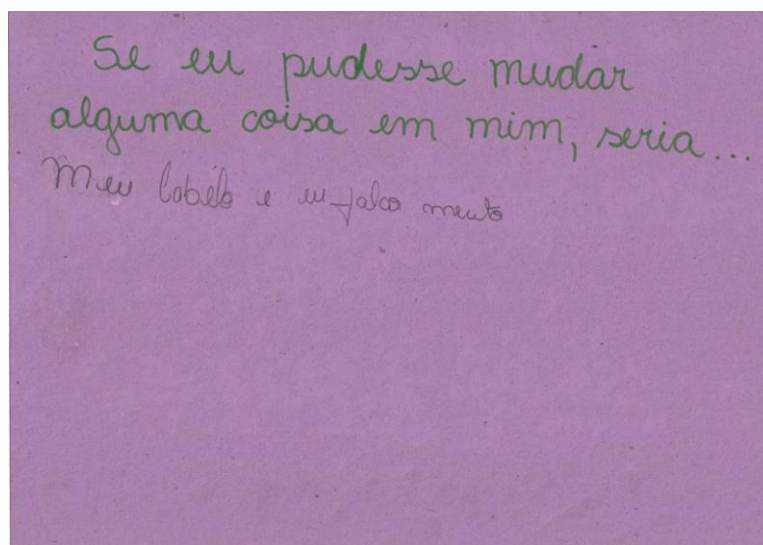 Se eu pudesse mudar
alguma coisa em mim, seria...
Meu cabélo e eu falar mento